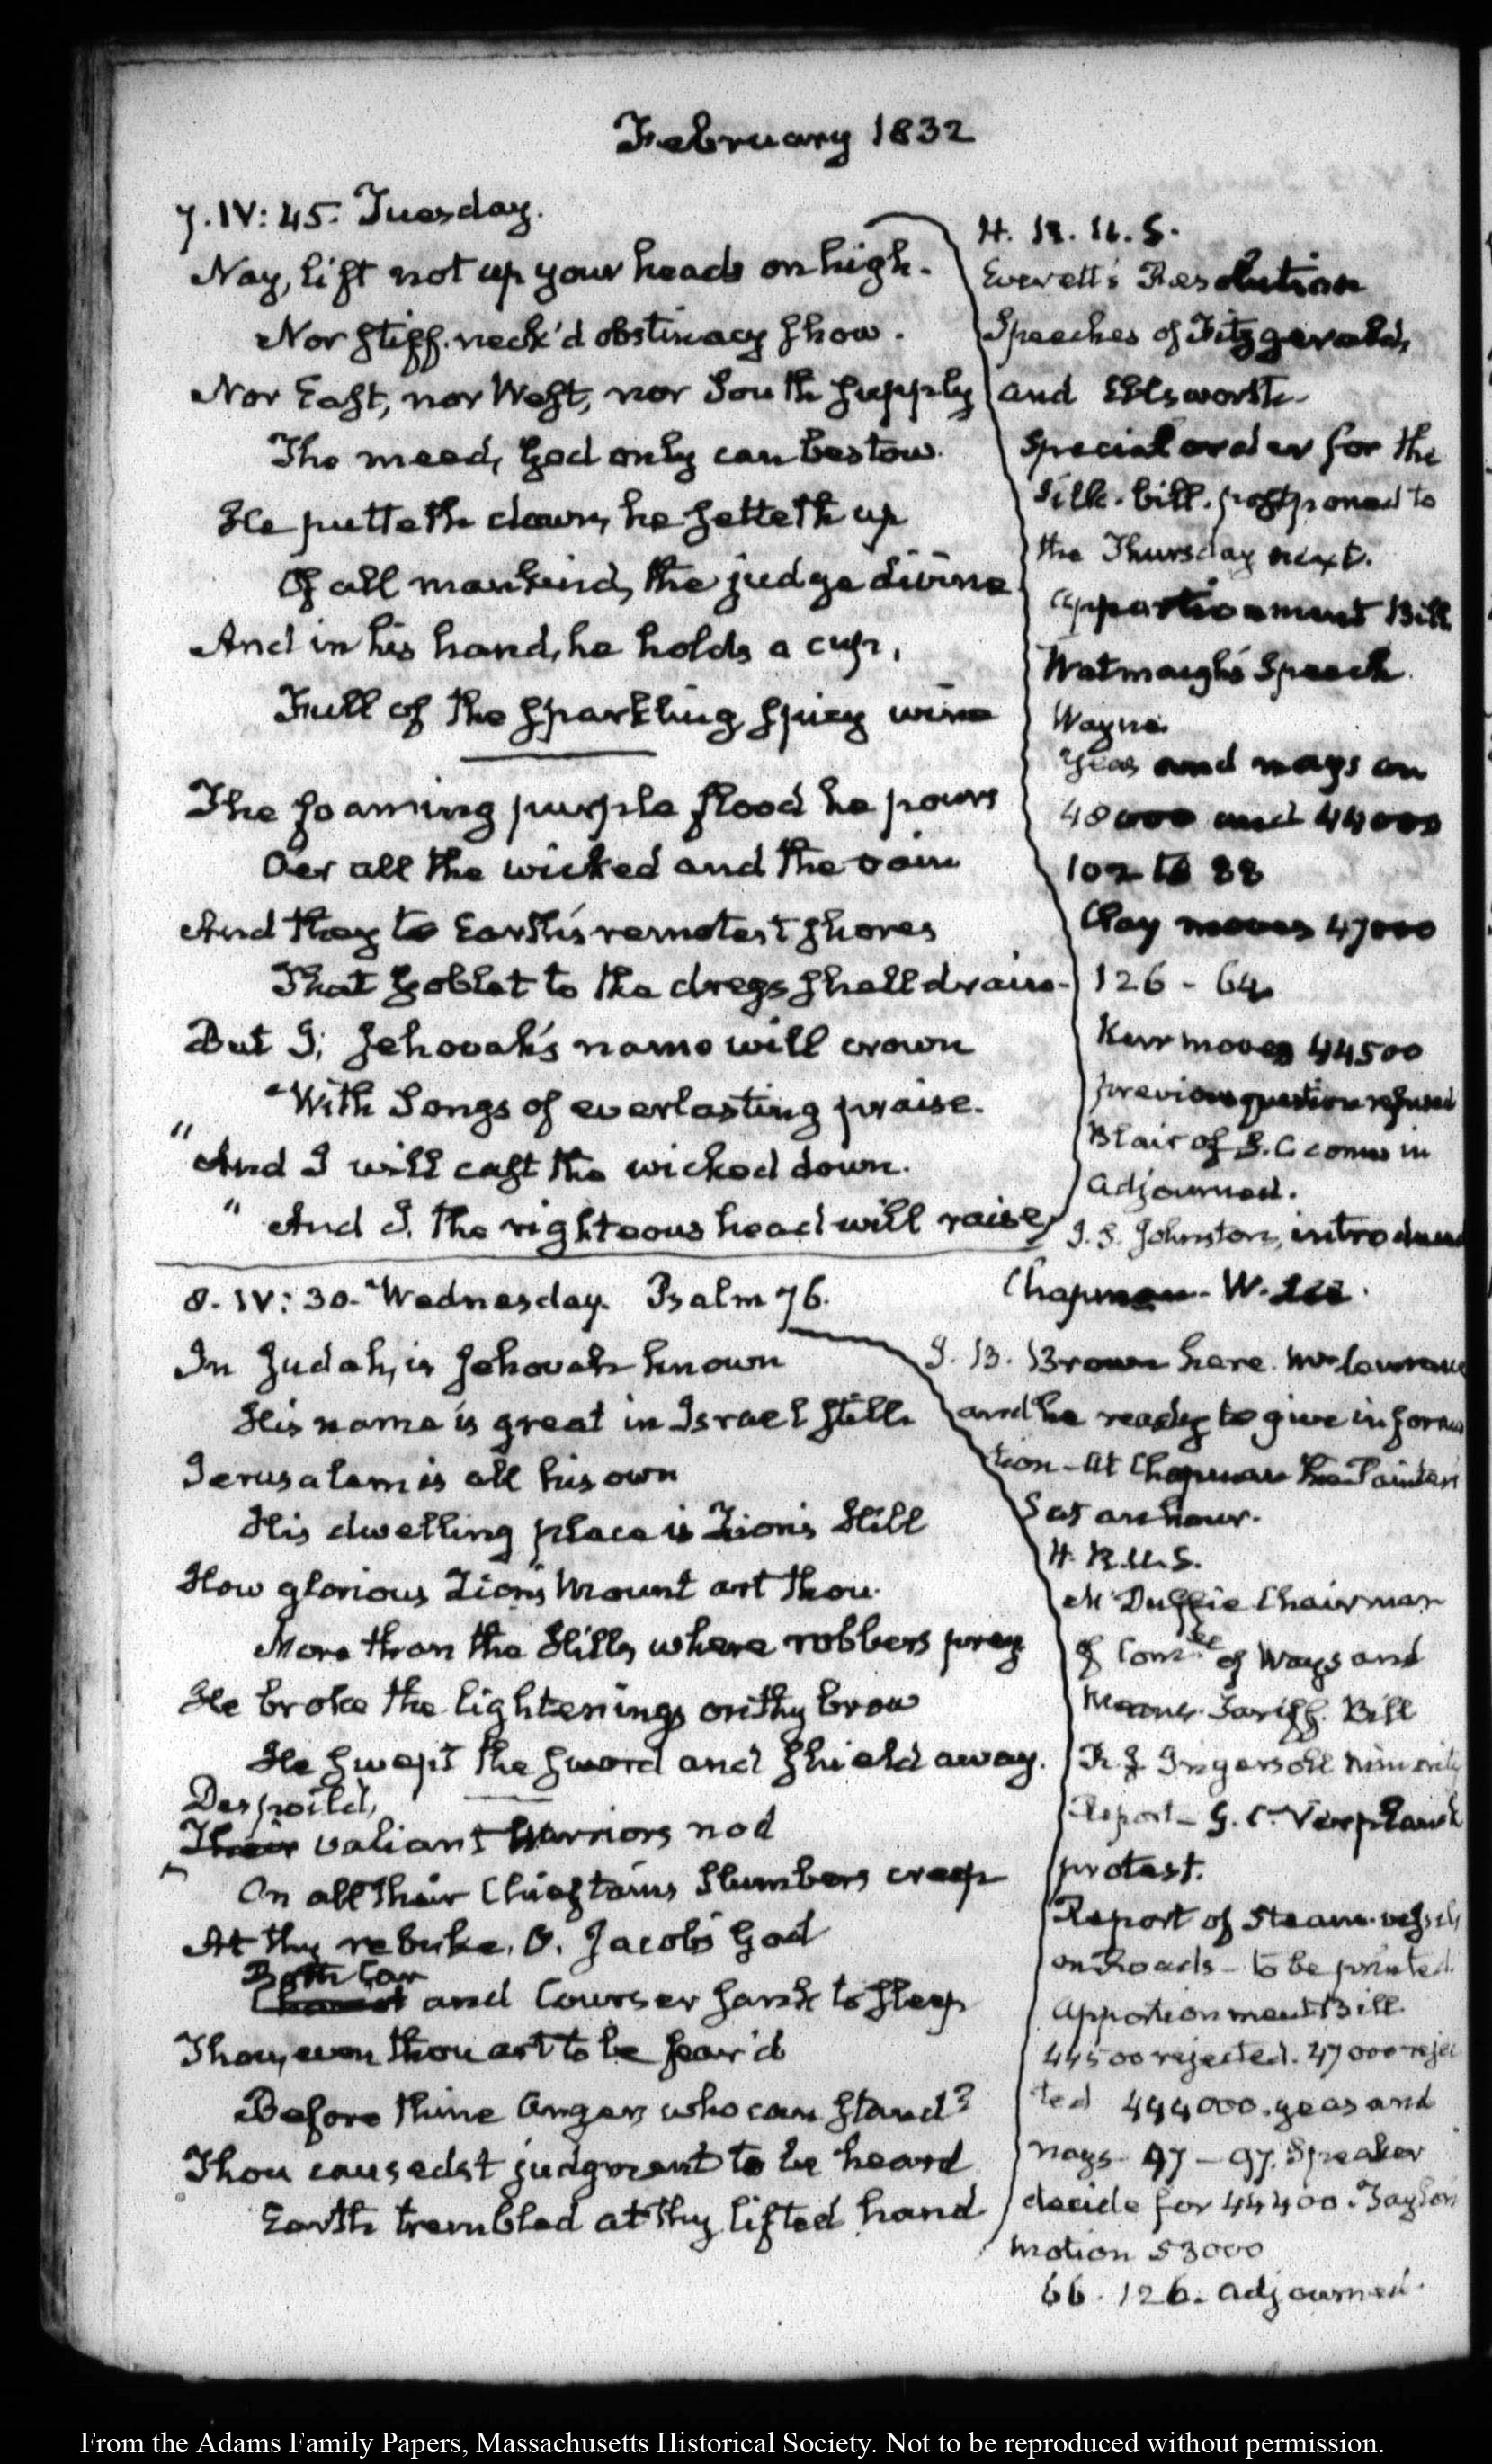 February 1832
7. IV: 45. Tuesday.
Nay, lift not up your heads on high.
Nor stiff-neck'd obstinacy show.
Nor East, nor West, nor South supply
The meed, God only can bestow.
He putteth down, he setteth up
Of all mankind, the judge divine
And in his hand, he holds a cup,
Full of the sparkling, spicy wine
The foaming purple flood he pours
O'er all the wicked and the vain
And they to Earth's remotest shores
That goblet to the dregs shall drain-
But I; Jehovah's name will crown
"With Songs of everlasting praise.
"And I will cast the wicked down.
" And I, the righteous head will raise,
H. R. U. S.
Everett's Resolution
Speeches of Fitzgerald,
and Ellsworth-
Special order for the
Silk-bill. postponed to
the Thursday next.
Apportionment Bill
Watmough's Speech.
Wayne.
Yeas and nays on
48000 and 44000
102 to 88
Clay moves 47000
126 - 64
Kerr moves 44500
previous question refused
Blair of S. C. comes in
Adjourned.
J. S. Johnston, introduced
Chapman - W. Lee.
8. IV: 30. Wednesday. Psalm 76.
In Judah, is Jehovah known
His name is great in Israel still.
Jerusalem is all his own
His dwelling place is Zion's Hill
How glorious Zion's Mount art thou.
More than the Hills, where robbers prey
He broke the lightenings on thy brow
He swept the sword and shield away.
Despoil'd,
Their valiant Warriors nod
On all their Chieftains Slumbers creep
At thy rebuke, O. Jacob's God
Both Car
Chariot and Courser sank to sleep
Thou, even thou art to be fear'd
Before thine Anger, who can stand?
Thou causedst judgment to be heard
Earth trembled at thy lifted hand
J. B. Brown here. Mr Lawrence
and he ready to give informa
tion - At Chapman the Painters
Sat an hour.
H. R. U. S.
McDuffie Chairman
of Comtee of Ways and
Means. Tariff. Bill
R. J. Ingersoll minority
Report - G. C. Verplanck
protest.
Report of Steam-vessels
on Roads - to be printed.
Apportionment Bill.
44500 rejected. 47000 rejec
ted 444000. yeas and
nays- 97 - 97. Speaker
decide for 44400. Taylor's
motion 53000
66. 126. adjourned.
From the Adams Family Papers, Massachusetts Historical Society. Not to be reproduced without permission.